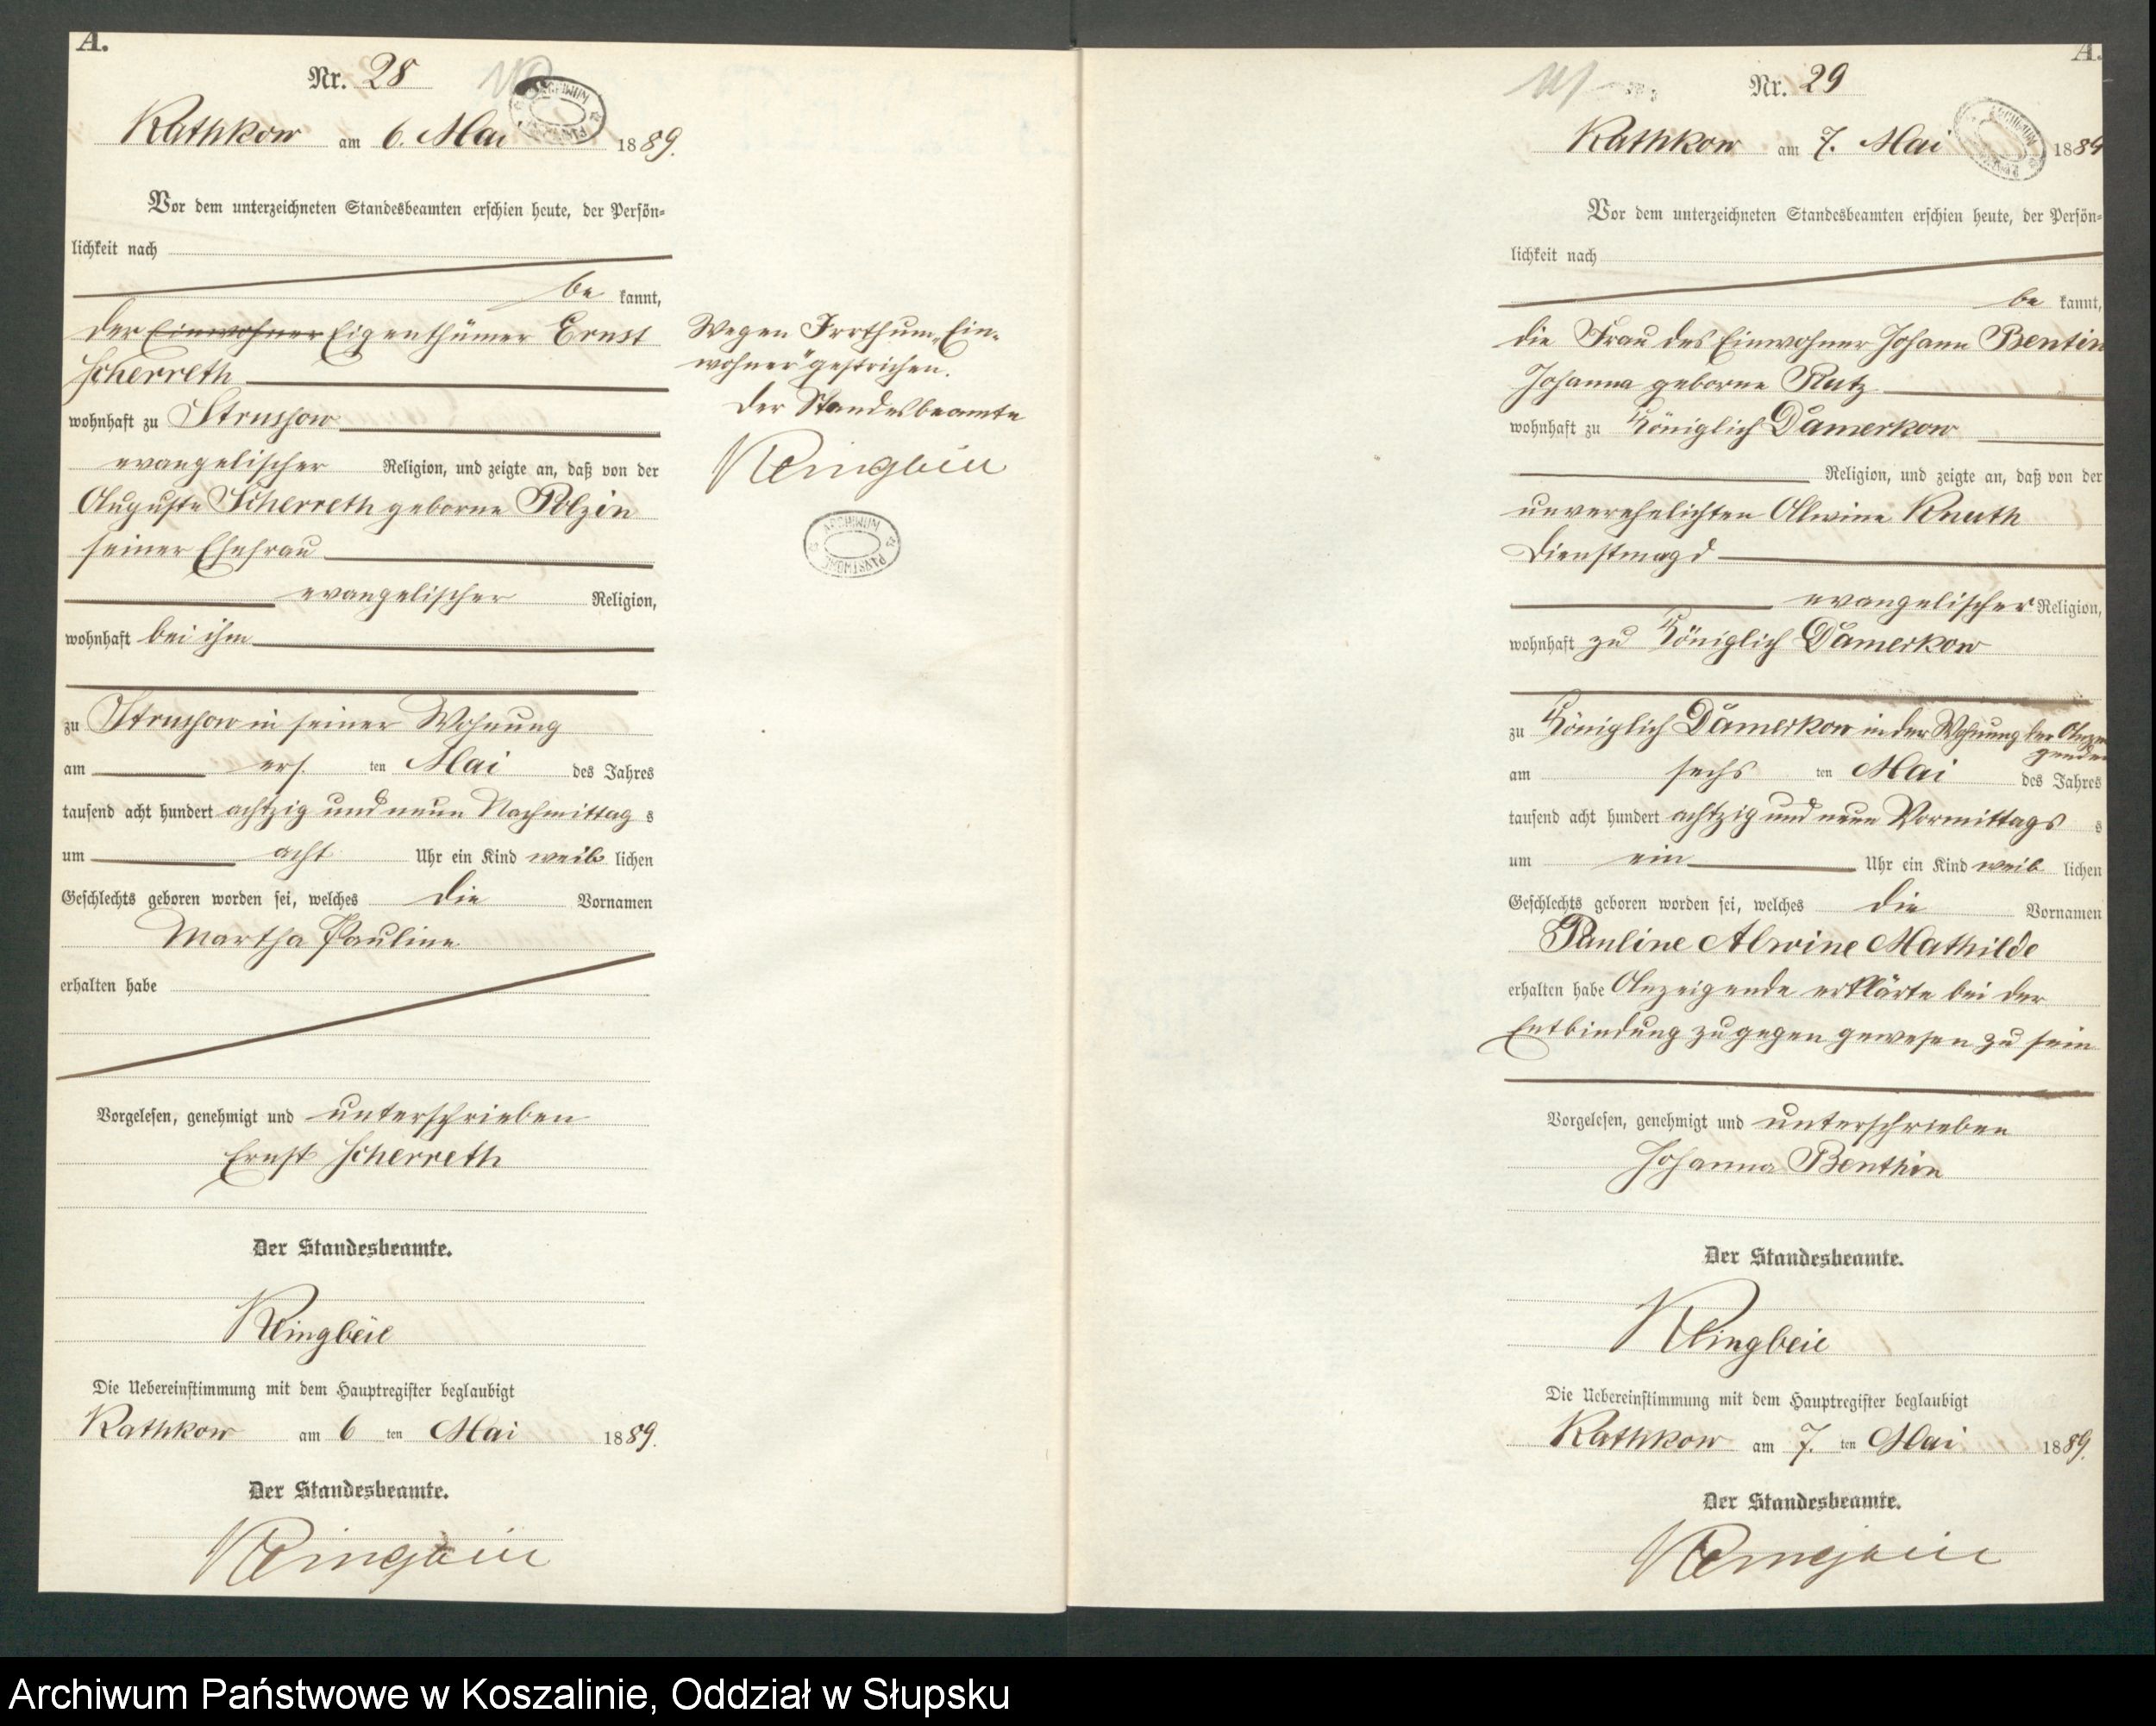 A.
Nr. 28
Rathkow am 6. Mai 1889.
Vor dem unterzeichneten Standesbeamten erschien heute, der Persön-
lichkeit nach
be kannt,
der Einwohner Eigenthümer Ernst
Scherreth
wohnhaft zu Strussow
evangelischer Religion, und zeigte an, daß von der
Auguste Scherreth geborne Polzin
seiner Ehefrau
evangelischer Religion,
wohnhaft bei ihm
zu Strussow in seiner Wohnung
am ers ten Mai des Jahres
tausend acht hundert achtzig und neun Nachmittag s
um acht Uhr ein Kind weib lichen
Geschlechts geboren worden sei, welches die Vornamen
Martha Pauline
erhalten habe
Vorgelesen, genehmigt und unterschrieben
Ernst Scherreth
Der Standesbeamte.
Klingbeil
Die Uebereinstimmung mit dem Hauptregister beglaubigt
Rathkow am 6 ten Mai 1889.
Der Standesbeamte.
Klingbeil
Wegen Irrthum „Ein-
wohner" gestrichen.
Der Standesbeamte
Klingbeil
ARCHIWUM PAŃSTWOWE
A.
Nr. 29
Rathkow am 7. Mai 1889
Vor dem unterzeichneten Standesbeamten erschien heute, der Persön-
lichkeit nach
be kannt,
die Frau des Einwohner Johann Bentin
Johanna geborne Rutz
wohnhaft zu Königlich Damerkow
Religion, und zeigte an, daß von der
unverehelichten Alwine Knuth
Dienstmagd
evangelischer Religion,
wohnhaft zu Königlich Damerkow
zu Königlich Damerkow in der Wohnung der Anzei
genden
am sechs ten Mai des Jahres
tausend acht hundert achtzig und neun Vormittags s
um ein Uhr ein Kind weib lichen
Geschlechts geboren worden sei, welches die Vornamen
Pauline Alwine Mathilde
erhalten habe Anzeigende erklärte bei der
Entbindung zugegen gewesen zu sein
Vorgelesen, genehmigt und unterschrieben
Johanna Benthin
Der Standesbeamte.
Klingbeil
Die Uebereinstimmung mit dem Hauptregister beglaubigt
Rathkow am 7. ten Mai 1889.
Der Standesbeamte.
Klingbeil
Archiwum Państwowe w Koszalinie, Oddział w Słupsku